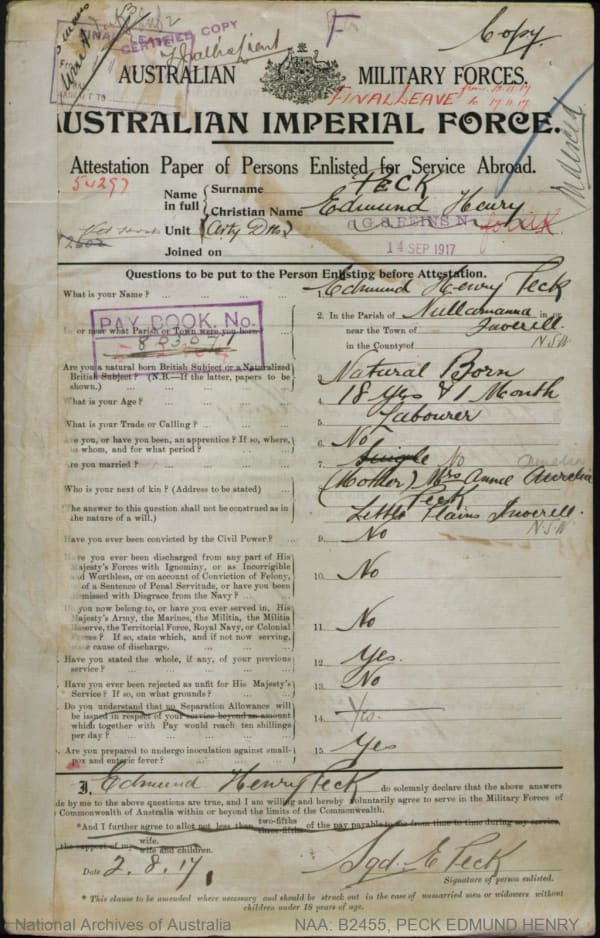 CERTIFIED COPY
Copy.
AUSTRALIAN MILITARY FORCES.
FINAL LEAVE from 10.11.17
to 17.11.17
AUSTRALIAN IMPERIAL FORCE.
Attestation Paper of Persons Enlisted for Service Abroad.
54297
Name in full
Surname PECK
Christian Name Edmund Henry
6 G.S. REINS N.
Unit
Joined on 14 SEP 1917
Questions to be put to the Person Enlisting before Attestation.
What is your Name? ... 1. Edmund Henry Peck
PAY BOOK. No.
In or near what Parish or Town were you born? 2. In the Parish of Nullamanna in or
near the Town of Inverell.
in the County of N.S.W
Are you a natural born British Subject or a Naturalized
British Subject? (N.B.—If the latter, papers to be
shown.) 3. Natural Born
What is your Age? ... 4. 18 Yrs & 1 Month
What is your Trade or Calling? ... 5. Labourer
Are you, or have you been, an apprentice? If so, where,
to whom, and for what period? ... 6. No
Are you married? ... 7. Single No
Who is your next of kin? (Address to be stated) ... (Mother) Mrs Annie Aurelia
Peck
(The answer to this question shall not be construed as in
the nature of a will.) Little Plains Inverell.
N.S.W
Have you ever been convicted by the Civil Power? ... 9. No
Have you ever been discharged from any part of His
Majesty's Forces with Ignominy, or as Incorrigible
and Worthless, or on account of Conviction of Felony,
or of a Sentence of Penal Servitude, or have you been
dismissed with Disgrace from the Navy? ... 10. No
Do you now belong to, or have you ever served in, His
Majesty's Army, the Marines, the Militia, the Militia
Reserve, the Territorial Force, Royal Navy, or Colonial
Forces? If so, state which, and if not now serving,
state cause of discharge. 11. No
Have you stated the whole, if any, of your previous
service? ... 12. Yes.
Have you ever been rejected as unfit for His Majesty's
Service? If so, on what grounds? ... 13. No
Do you understand that no Separation Allowance will
be issued in respect of your service beyond an amount
which together with Pay would reach ten shillings
per day? ... 14. Yes.
Are you prepared to undergo inoculation against small-
pox and enteric fever? ... 15. Yes
I, Edmund Henry Peck do solemnly declare that the above answers
made by me to the above questions are true, and I am willing and hereby voluntarily agree to serve in the Military Forces of
Commonwealth of Australia within or beyond the limits of the Commonwealth.
*And I further agree to allot not less than two-fifths three-fifths of the pay payable to me from time to time during my service
the support of my wife. wife and children.
Date 2.8.17.
Sgd. E Peck
Signature of person enlisted.
* This clause to be amended where necessary and should be struck out in the case of unmarried men or widowers without
children under 18 years of age.
National Archives of Australia NAA: B2455, PECK EDMUND HENRY